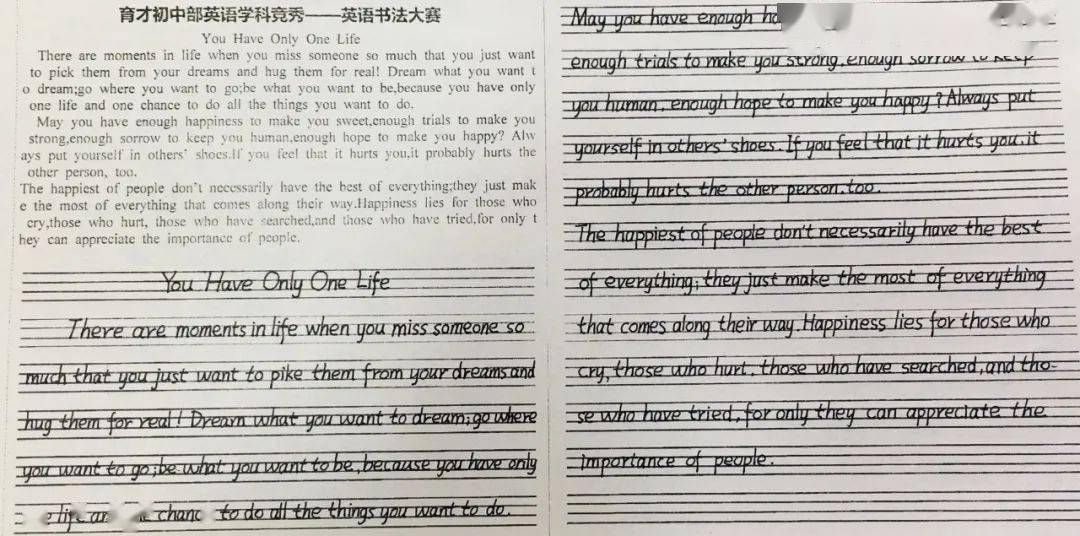 育才初中部英语学科竞秀——英语书法大赛
You Have Only One Life
There are moments in life when you miss someone so much that you just want
to pick them from your dreams and hug them for real! Dream what you want t
o dream;go where you want to go;be what you want to be,because you have only
one life and one chance to do all the things you want to do.
May you have enough happiness to make you sweet,enough trials to make you
strong,enough sorrow to keep you human,enough hope to make you happy? Alw
ays put yourself in others' shoes.If you feel that it hurts you,it probably hurts the
other person, too.
The happiest of people don't necessarily have the best of everything;they just mak
e the most of everything that comes along their way.Happiness lies for those who
cry,those who hurt, those who have searched,and those who have tried,for only t
hey can appreciate the importance of people.
You Have Only One Life
There are moments in life when you miss someone so
much that you just want to pike them from your dreams and
hug them for real! Dream what you want to dream;go where
you want to go;be what you want to be,because you have only
life to do all the things you want to do.
May you have enough
enough trials to make you strong,enough sorrow to keep
you human,enough hope to make you happy? Always put
yourself in others' shoes. If you feel that it hurts you,it
probably hurts the other person,too.
The happiest of people don't necessarily have the best
of everything; they just make the most of everything
that comes along their way.Happiness lies for those who
cry,those who hurt, those who have searched,and tho-
se who have tried,for only they can appreciate the
importance of people.